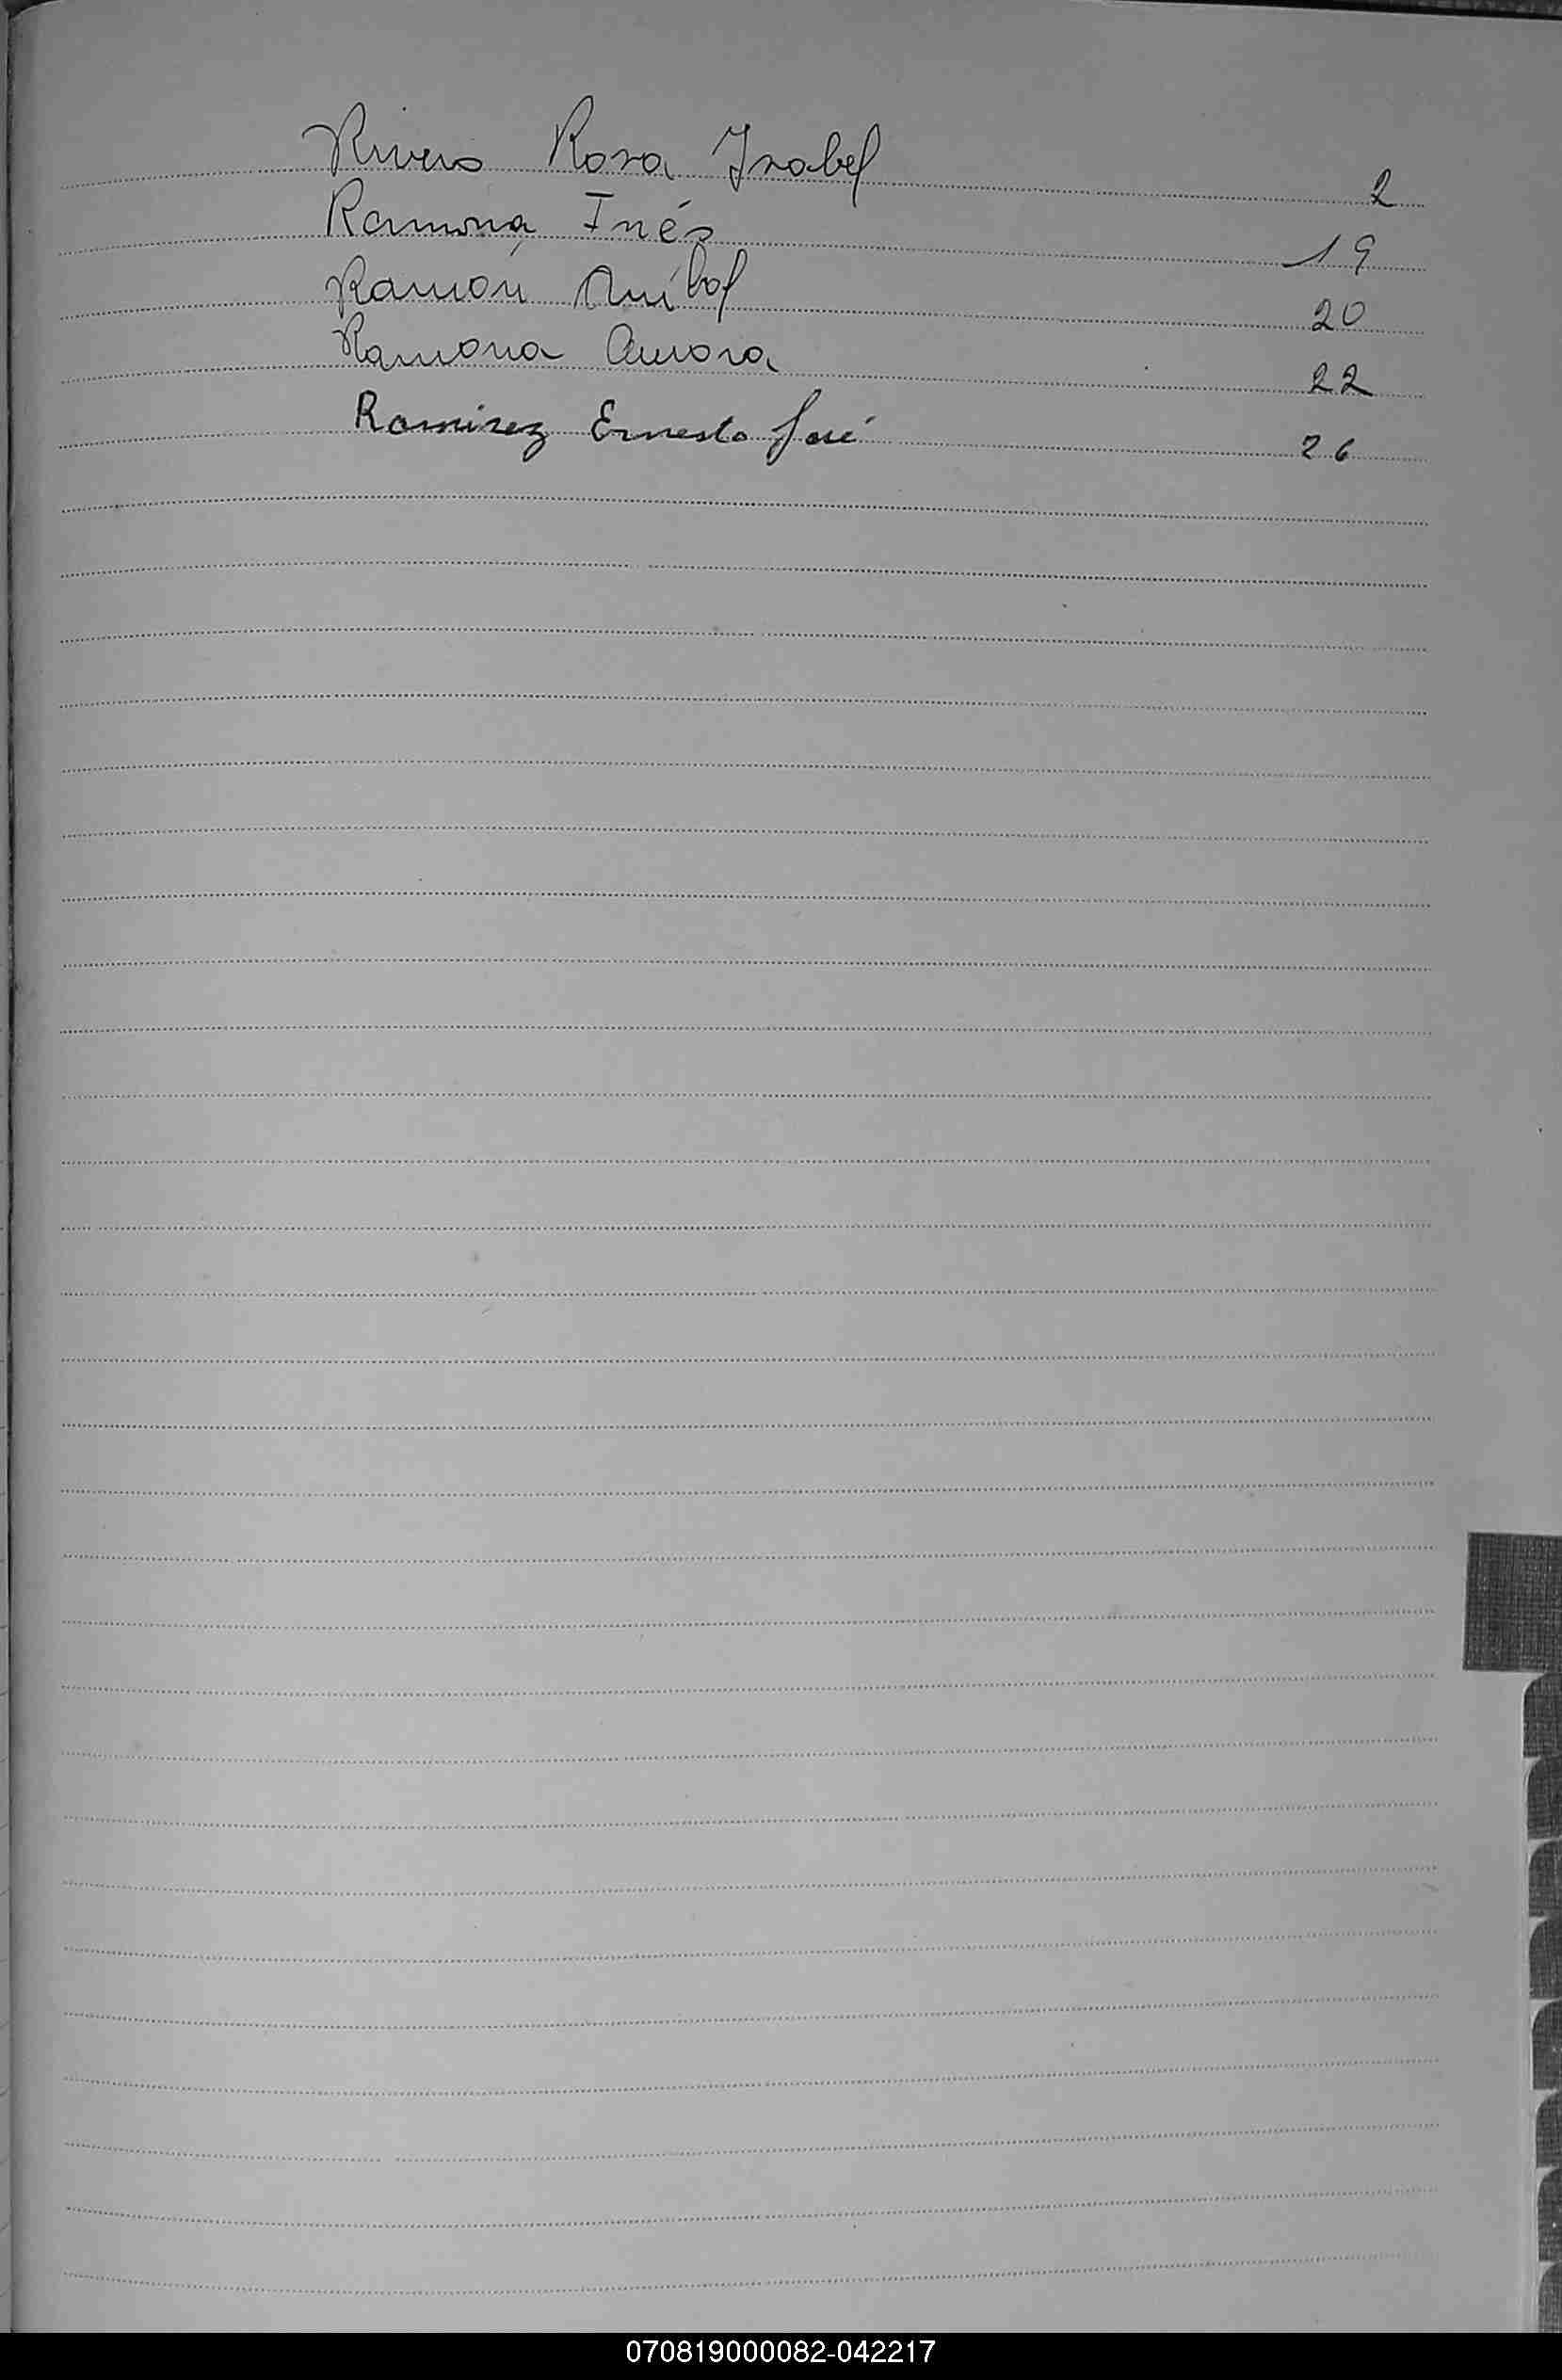 Rivero Rosa Isabel 2
Ramona Inés 19
Ramón Aníbal 20
Ramona Aurora 22
Ramirez Ernesto José 26
070819000082-042217